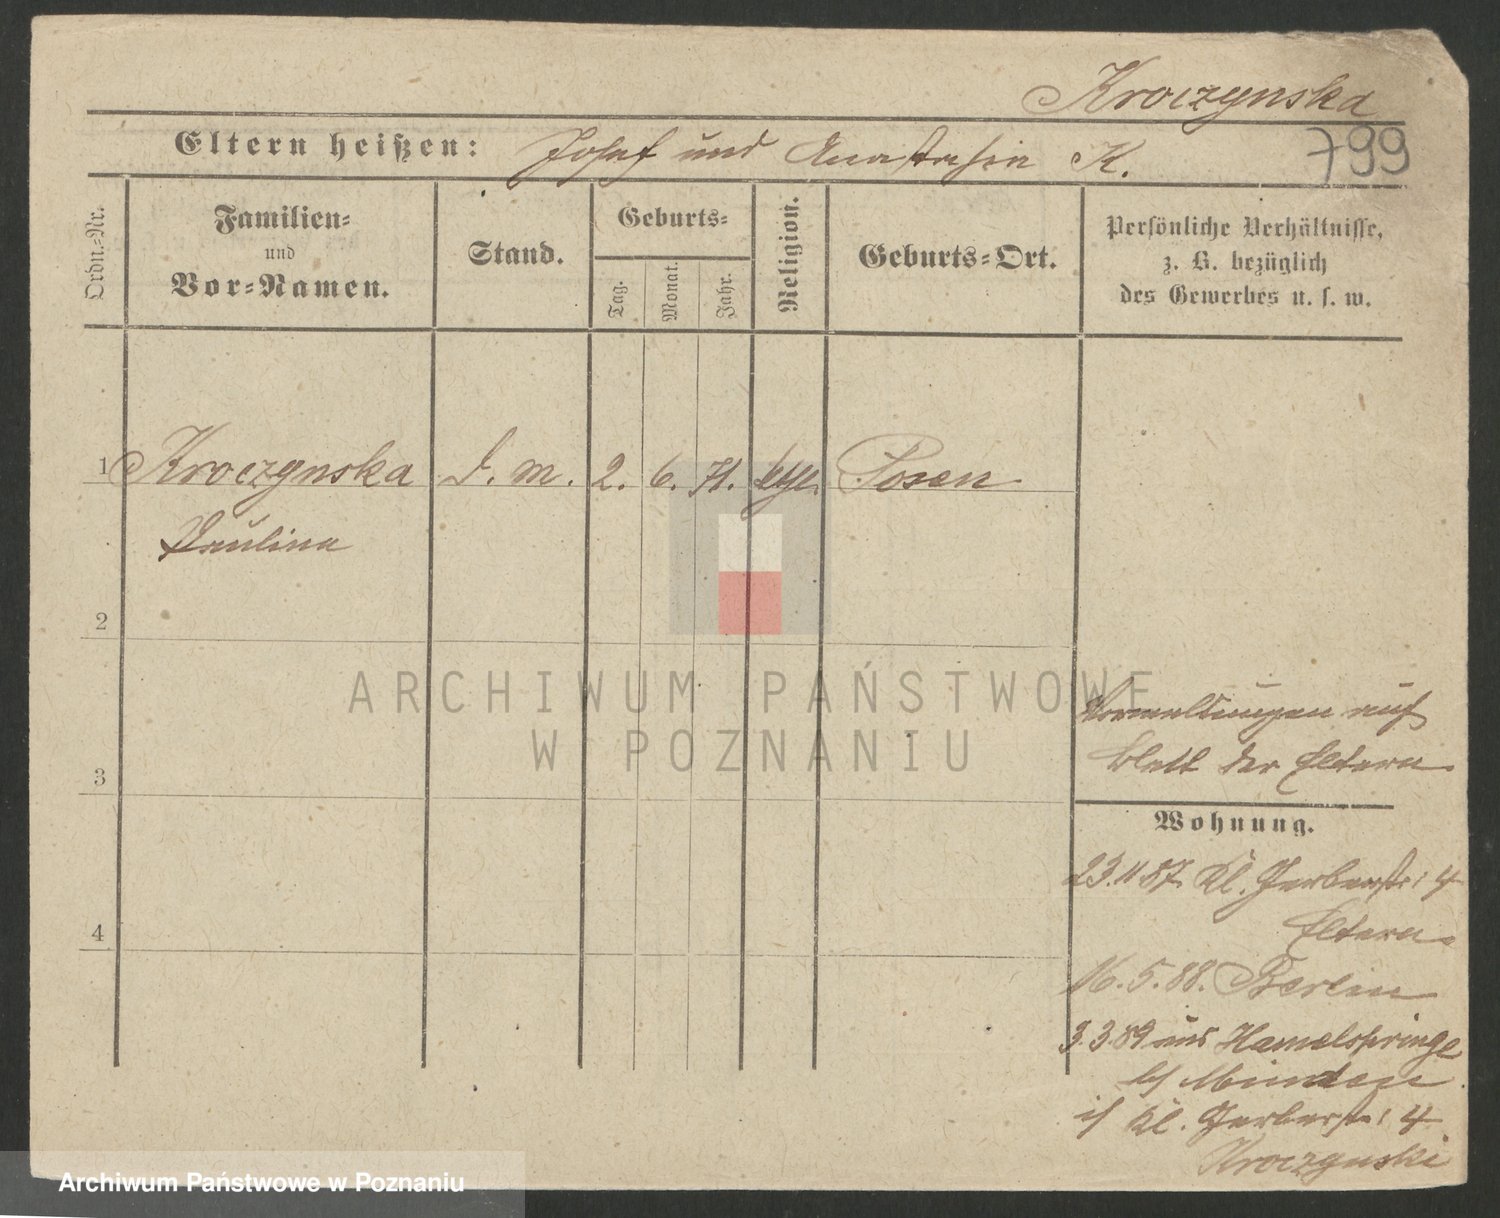 Kroczynska
Eltern heißen: Josef und Anastasia K.
799
Ordn.=Nr.
Familien=
und
Vor=Namen.
Stand.
Geburts=
Tag.
Monat.
Jahr.
Religion.
Geburts=Ort.
Persönliche Verhältnisse,
z. B. bezüglich
des Gewerbes u. s. w.
1 Kroczynska D. M. 2. 6. 71. Posen
Paulina
2
ARCHIWUM PAŃSTWOWE
W POZNANIU
3
4
auf
Blatt der Eltern
Wohnung.
23.11.87. Kl. Gerberstr: 4
Eltern.
16. 5. 88. Berlin
3.3.89 aus Hamelspringe
b/ Münden
i/ Kl. Gerberstr: 4
Kroczynski
Archiwum Państwowe w Poznaniu